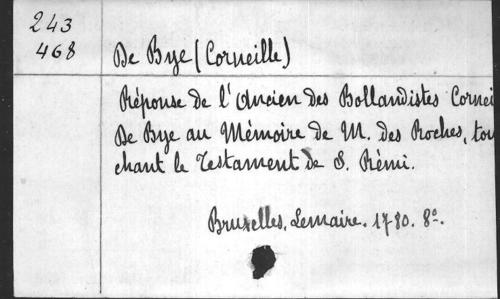 243
468
De Bye (Corneille)
Réponse de l'Ancien des Bollandistes Cornei
De Bye au Mémoire de M. des Roches, tou
chant le Testament de S. Rémi.
Bruxelles, Lemaire. 1780. 8º.